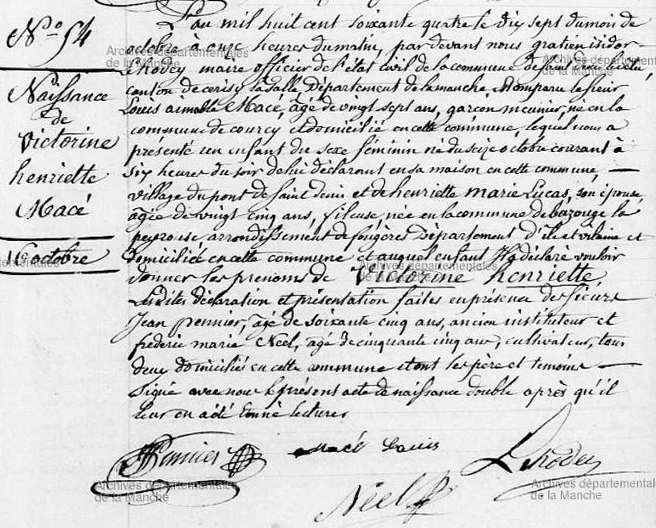 N.º 54
Naissance
de
Victorine
henriette
Macé
16 octobre
L'an mil huit cent soixante quatre le dix sept du mois de
octobre à onze heures du matin, par devant nous gratien isidor
Lerodey maire officier de l'état civil de la commune de Saint denis le vêtu,
canton de cerisy la Salle Département de la manche, est comparu le sieur
Louis aimable Macé, âgé de vingt sept ans, garçon meunier, né en la
commune de courcy et domicilié en cette commune, lequel nous a
présenté un enfant du sexe féminin né du seize octobre courant à
six heures du soir de lui déclarant en sa maison en cette commune,
village du pont de Saint Denis et de henriette marie Lucas, son épouse
âgée de vingt cinq ans, fileuse née en la commune de bazouge la
peyrouse arrondissement de fougères Département d'ile et vilaine et
domiciliée en cette commune et auquel enfant il a déclaré vouloir
donner les prénoms de Victorine henriette
Lesdites déclaration et présentation faites en présence des sieurs
Jean Pennier, âgé de soixante cinq ans, ancien instituteur et
frédéric marie Néel, âgé de cinquante cinq ans, cultivateur, tous
deux domiciliés en cette commune et ont les père et témoins
Signé avec nous le présent acte de naissance double après qu'il
leur en a été donné lecture
Pennier Macé Louis Lerodey
Néel
Archives départementales
de la Manche
Archives départementales
de la Manche
Archives départementales
de la Manche
Archives départementales
de la Manche
Archives départementales
de la Manche